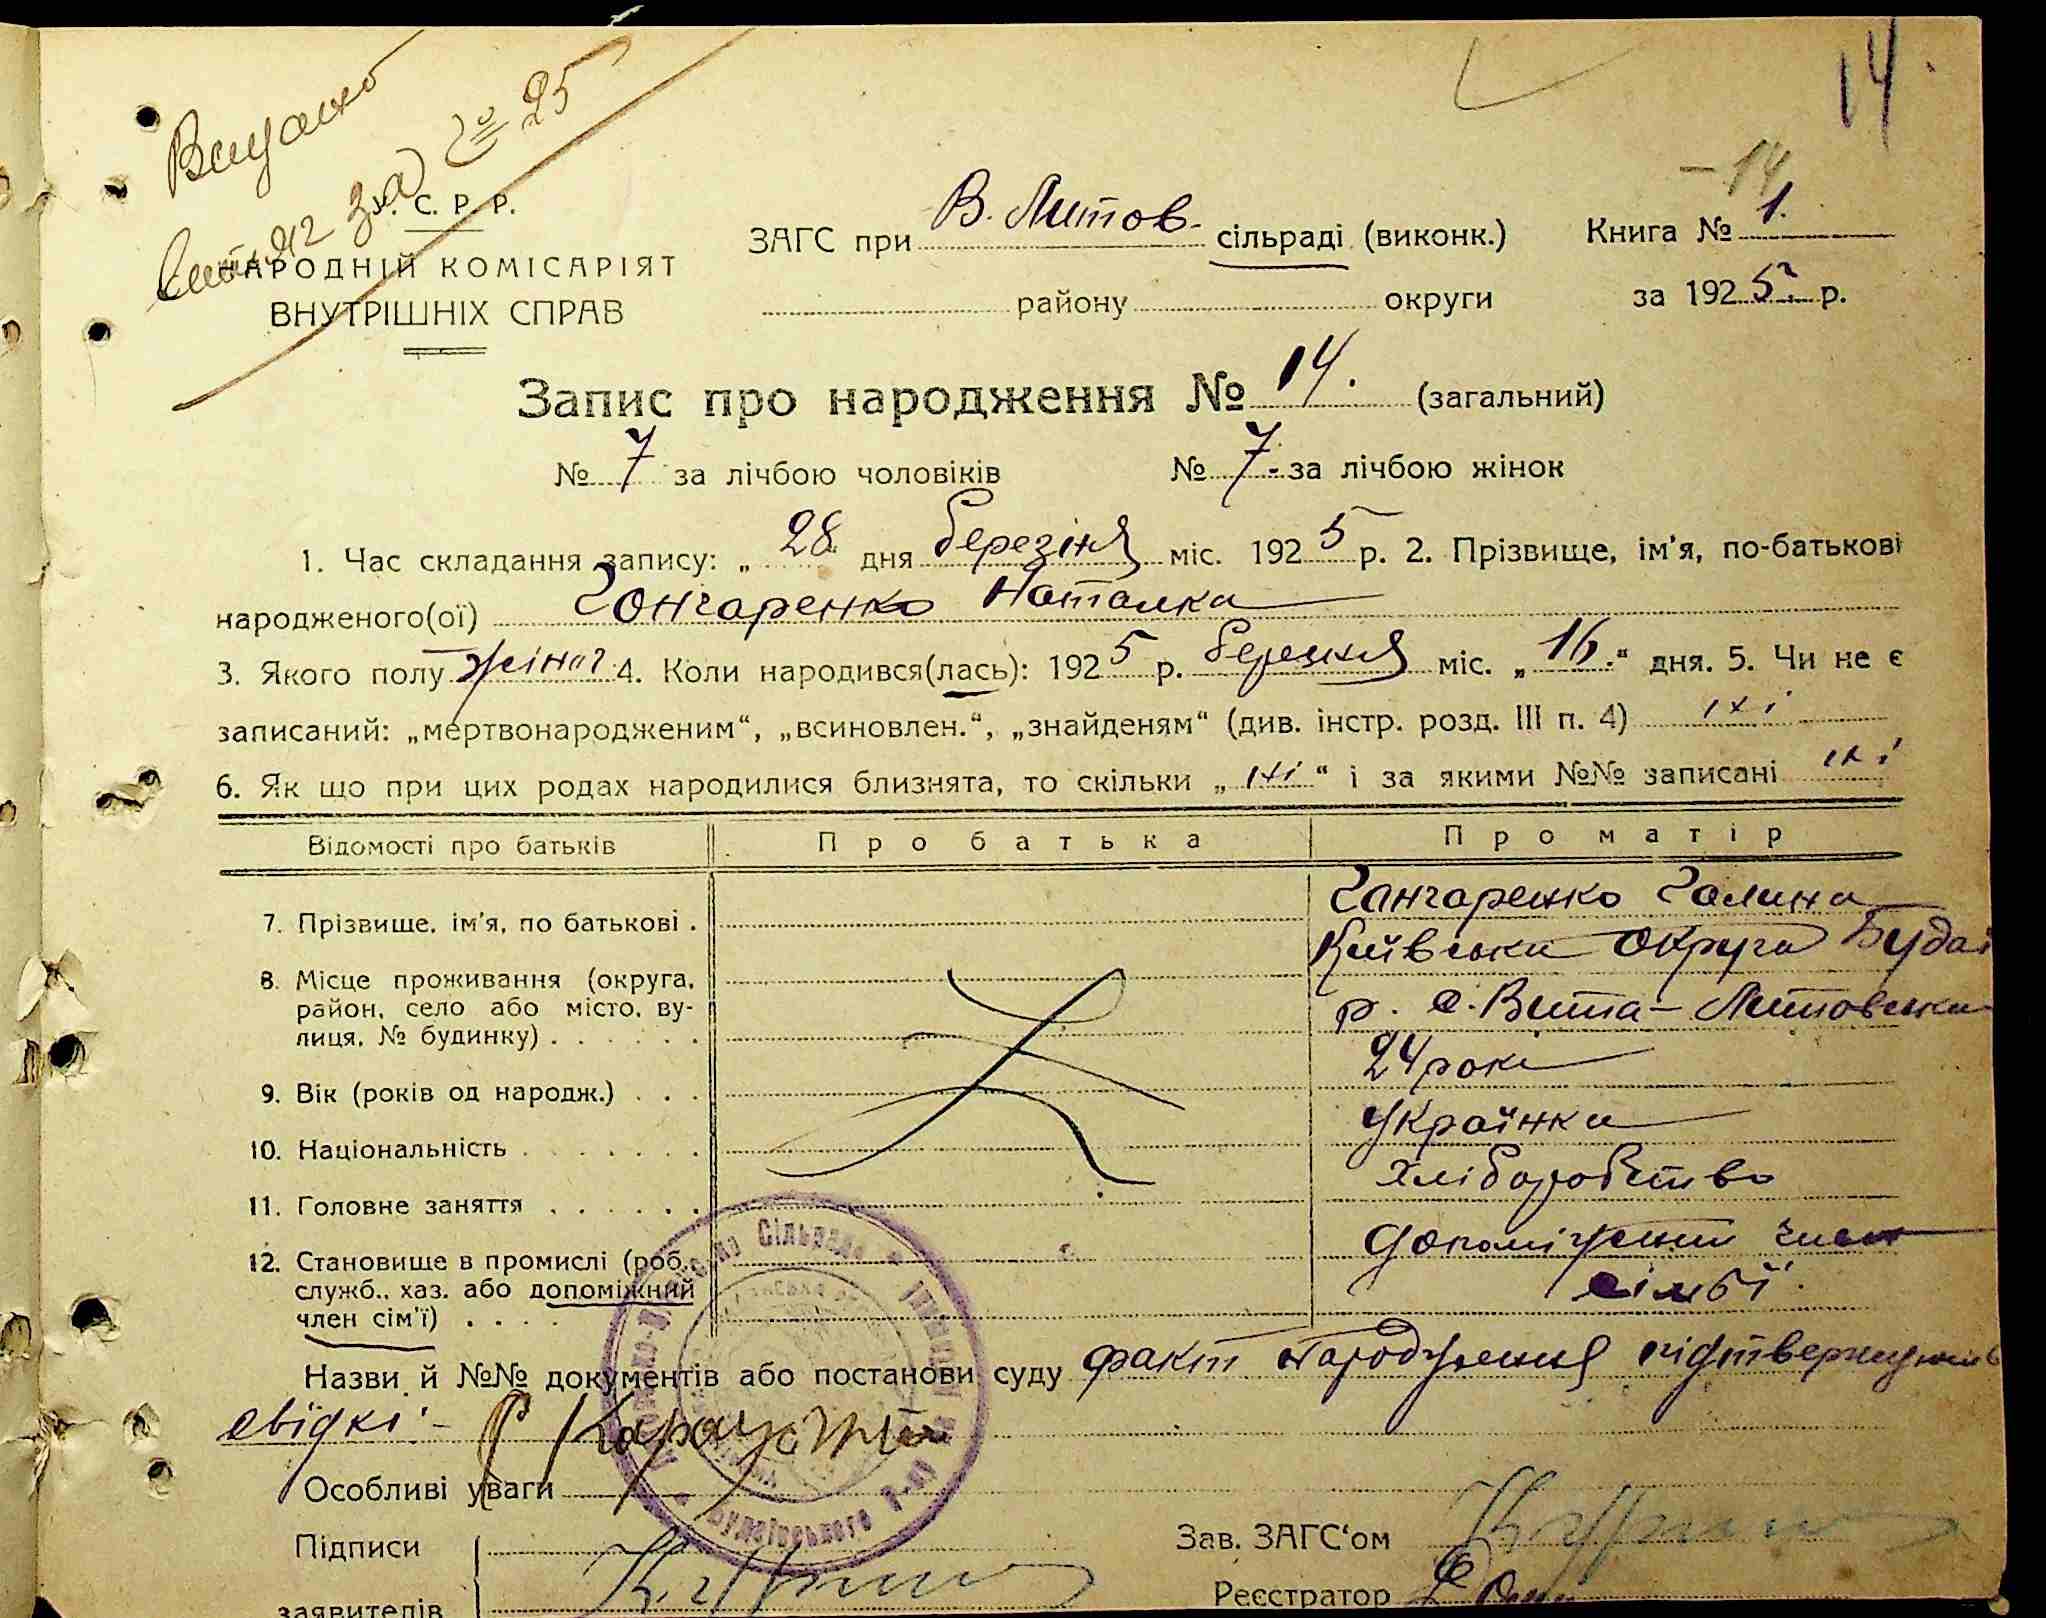 14.
Видано
за № 25
У. С. Р. Р.
НАРОДНІЙ КОМІСАРІЯТ
ВНУТРІШНІХ СПРАВ
ЗАГС при В. Литов. сільраді (виконк.)
району округи
- 14
Книга № 1.
за 1925 р.
Запис про народження № 14. (загальний)
№ 7 за лічбою чоловіків № 7 за лічбою жінок
1. Час складання запису: „28" дня березіня міс. 1925 р. 2. Прізвище, ім'я, по-батькові
народженого(ої) Гончаренко Наталка
3. Якого полу жіноч 4. Коли народився(лась): 1925 р. березня міс. „16." дня. 5. Чи не є
записаний: „мертвонародженим", „всиновлен.", „знайденям" (див. інстр. розд. III п. 4) ні
6. Як що при цих родах народилися близнята, то скільки „ні" і за якими №№ записані ні
Відомості про батьків Про батька Про матір
7. Прізвище, ім'я, по батькові . Гончаренко Галина
8. Місце проживання (округа, Київська округа Будаї
район, село або місто, ву- р. с. Вита-Литовська
лиця, № будинку) . . . . . .
9. Вік (років од народж.) . . . 24 рокі
10. Національність . . . . . . . Українка
11. Головне заняття . . . . . . Хліборобство
12. Становище в промислі (роб., допоміжний член
служб., хаз. або допоміжний сімьї.
член сім'ї) . . . .
Назви й №№ документів або постанови суду факт народження
свідкі: -
Особливі уваги
Підписи
заявителів
Зав. ЗАГС'ом
Реєстратор
Сільрада
Будаївського Р-ну